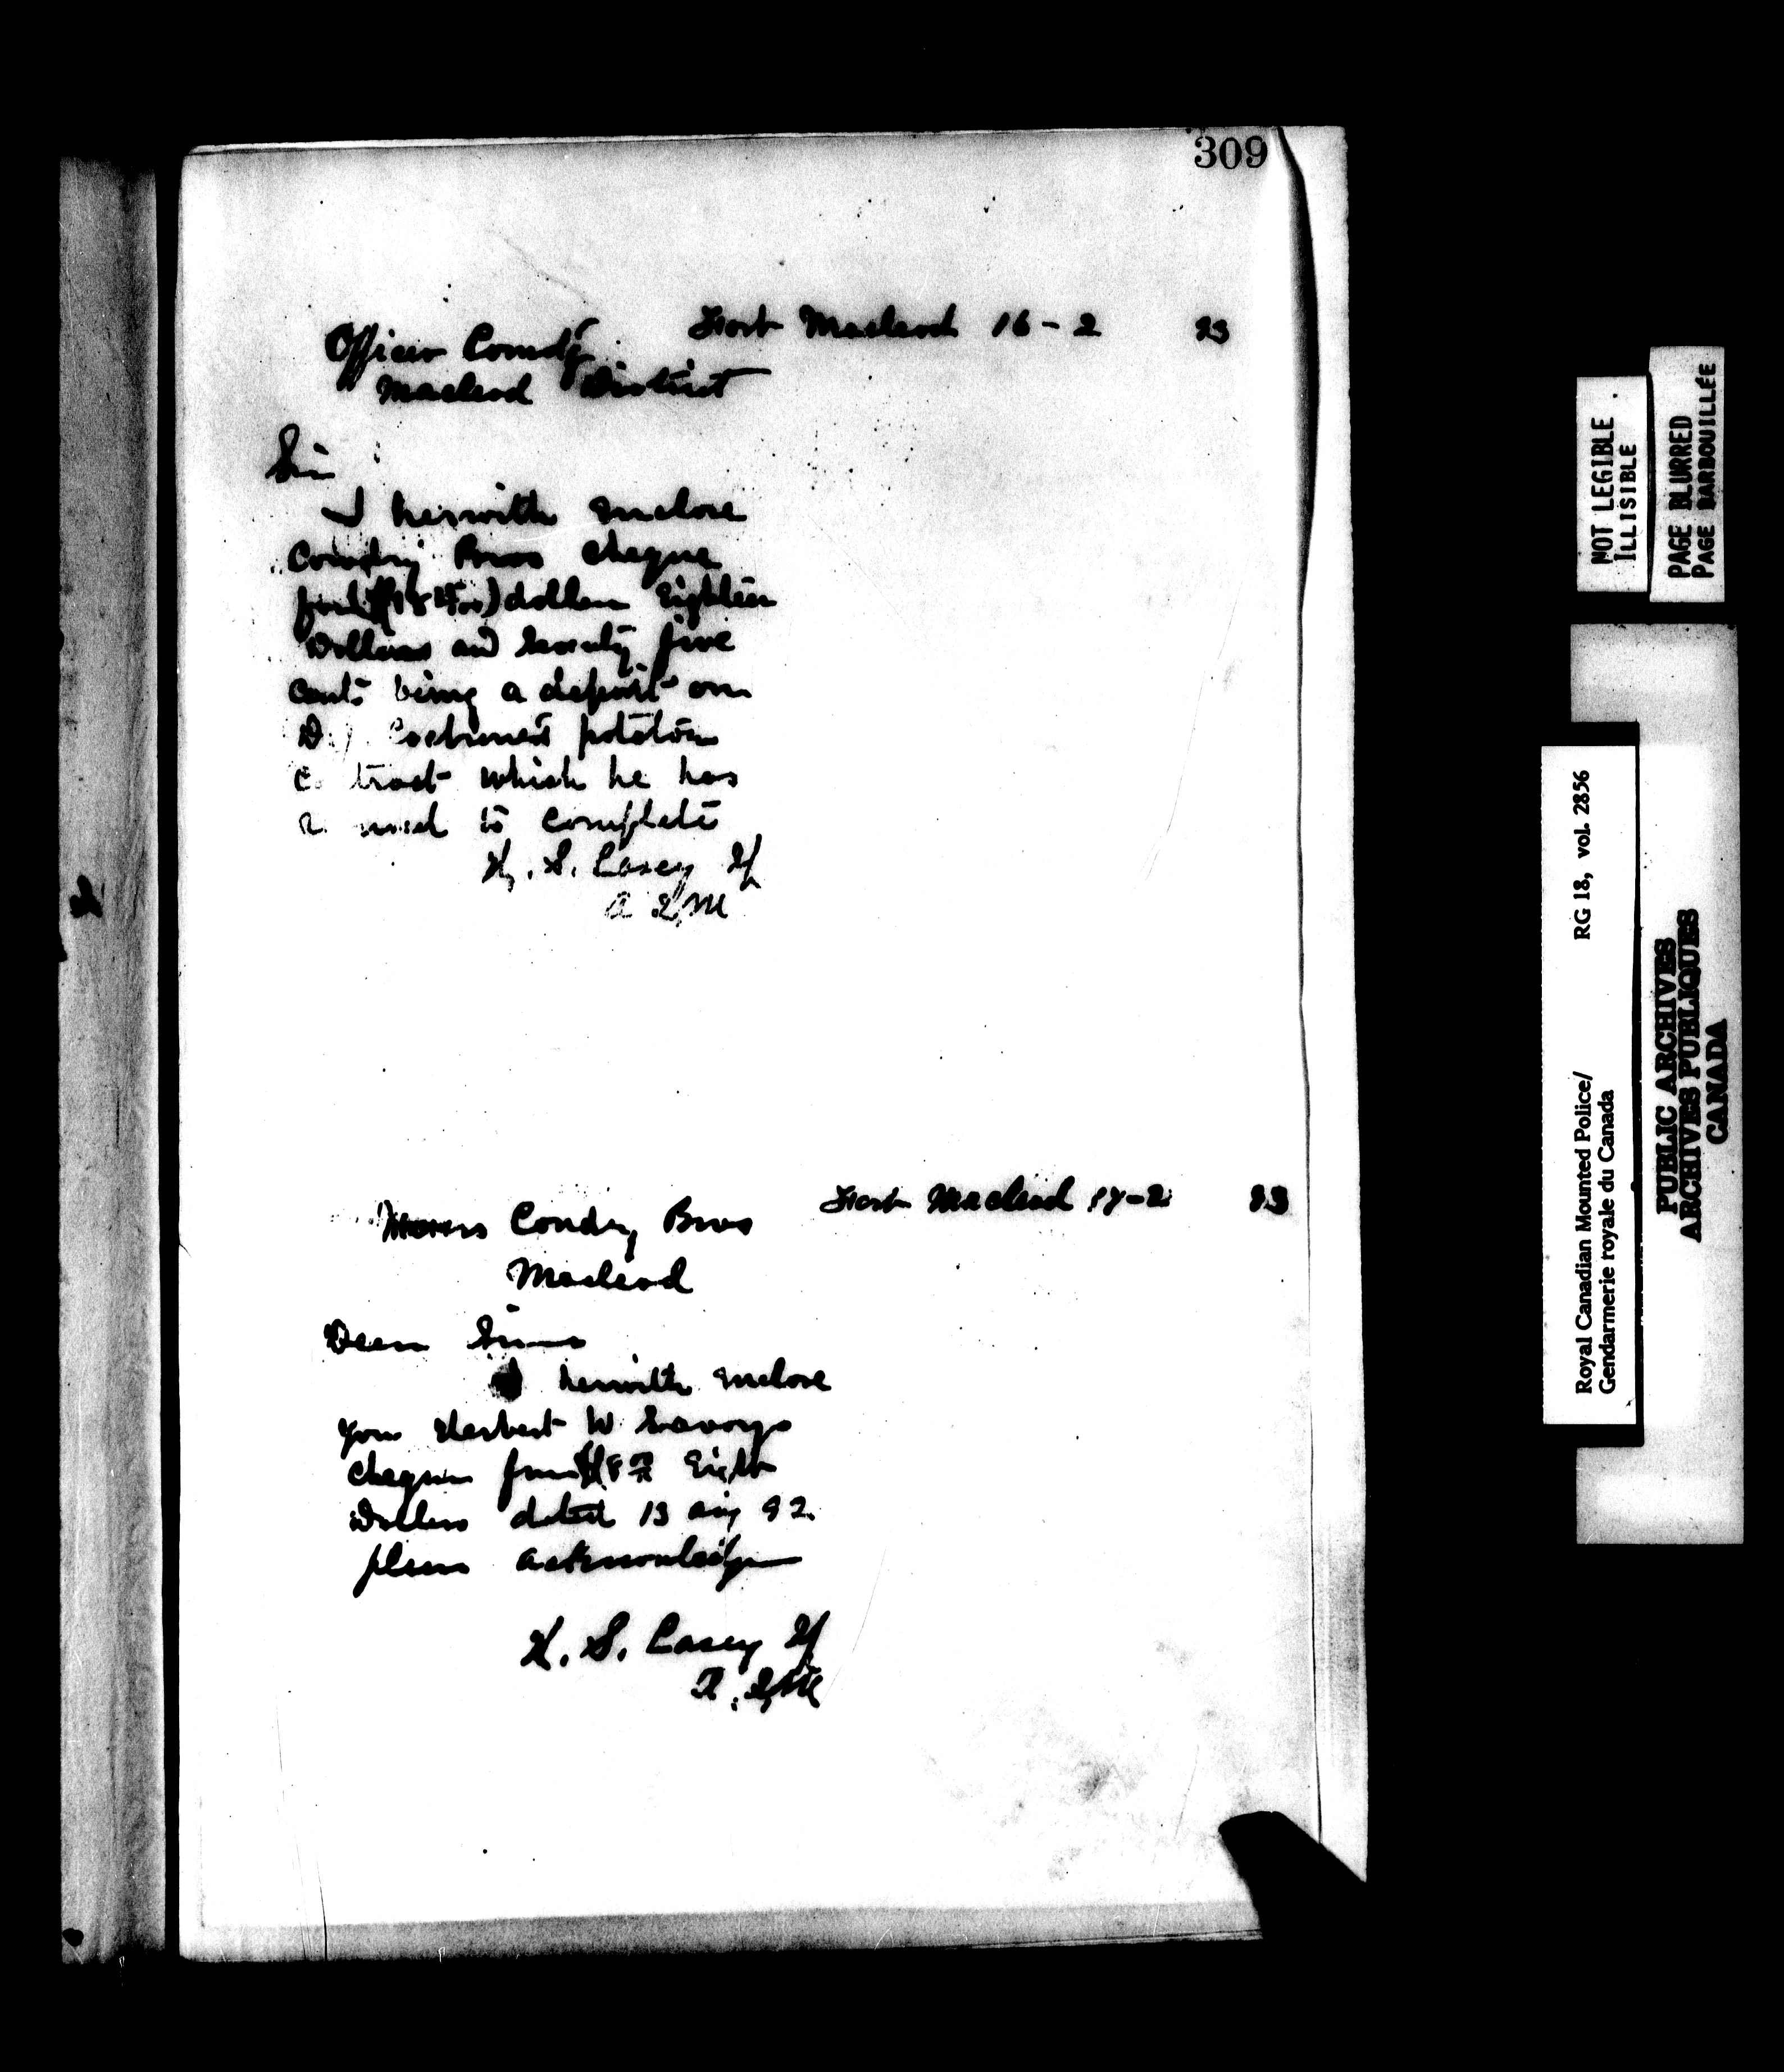 309
Fort Macleod 16-2 93
Officer Comdg
Macleod District
Sir
I herewith enclose
Cowdry Bros cheque
for dollars Eighteen
Dollars and Seventy five
cents being a deposit on
potatoe
tract which he has
to complete
H. S. Casey If
A QM
Fort Macleod 17-2 93
Messrs Cowdry Bros
Macleod
Dear Sirs
I herewith enclose
you Herbert W. Savorys
cheque for Eight
Dollars dated 13 aug 92.
please acknowledge
H. S. Casey If
A. QM
NOT LEGIBLE
ILLISIBLE
PAGE BLURRED
PAGE BARBOUILLÉE
RG 18, vol. 2856
Royal Canadian Mounted Police/
Gendarmerie royale du Canada
PUBLIC ARCHIVES
ARCHIVES PUBLIQUES
CANADA